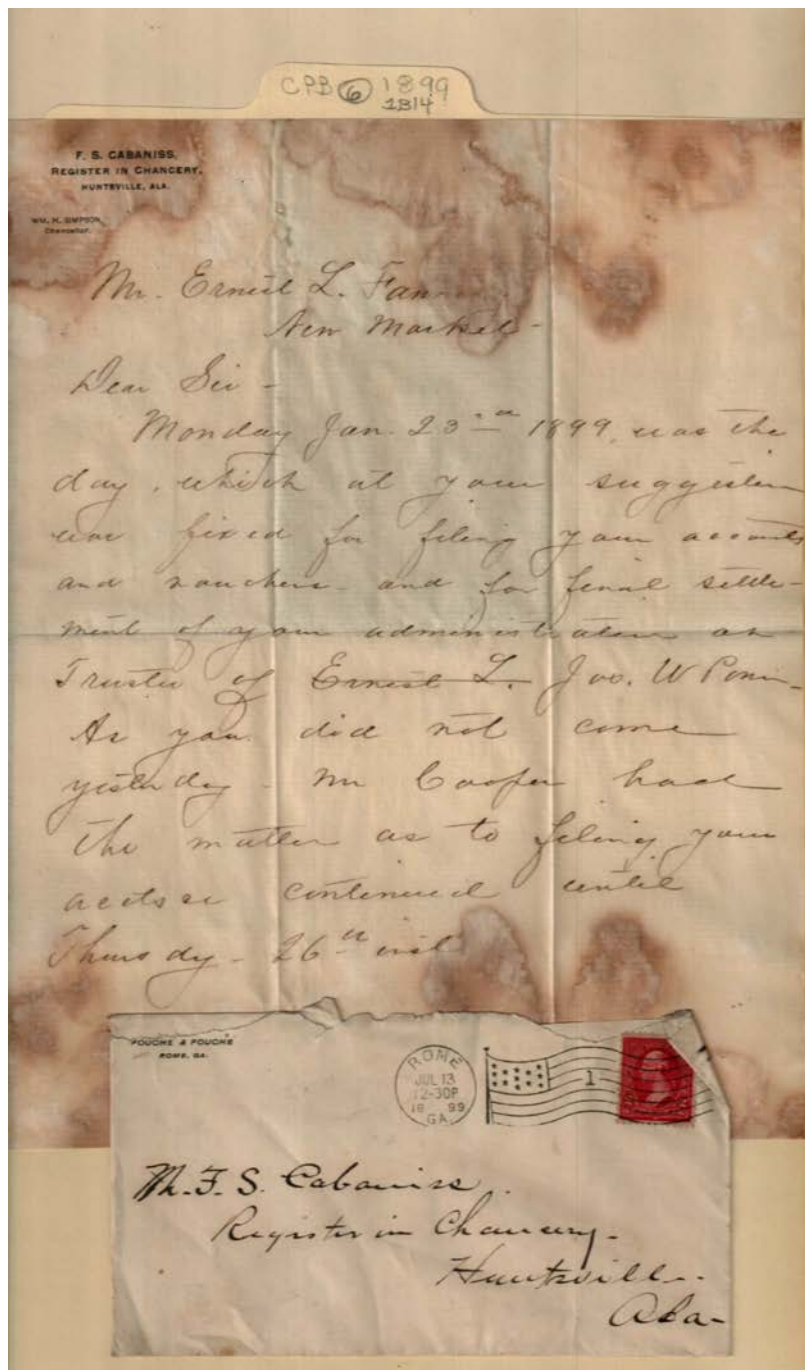 CPB 6 1899
2B14
F. S. CABANISS,
REGISTER IN CHANCERY,
HUNTSVILLE, ALA.
WM. H. SIMPSON,
Chancellor.
Mr. Ernest L.
New Market-
Dear Sir -
Monday Jan. 23rd 1899, was the
day, which at your suggestion
was fixed for filing your accounts
and vouchers and for final settle-
ment of your administration as
Trustee of Ernest L. Jno. W
As you did not come
yesterday - Mr Cooper had
the matter as to filing your
continued until
Thursdy - 26th inst
FOUCHE & FOUCHE
ROME, GA.
ROME
JUL 13
12-30P
18 99
GA.
1
Mr. F. S. Cabaniss.
Register in Chancery-
Huntsville-
Ala-